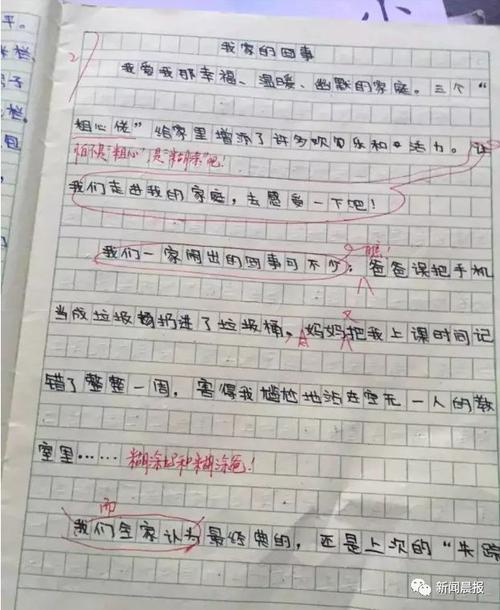 我家的囧事
我爱我那幸福、温暖、幽默的家庭。三个“
粗心佬”给家里增添了许多欢笑乐和活力。让
怕不是“粗心”是“糊涂”吧!
我们走进我的家庭,去感受一下吧!
我们一家闹出的囧事可不少:爸爸误把手机
当成垃圾扔进了垃圾桶,妈妈把我上课时间记
又
错了整整一周,害得我尴尬地站在空无一人的教
室里……糊涂妈和糊涂爸!
而
我们全家认为最经典的,还是上次的“失踪
新闻晨报